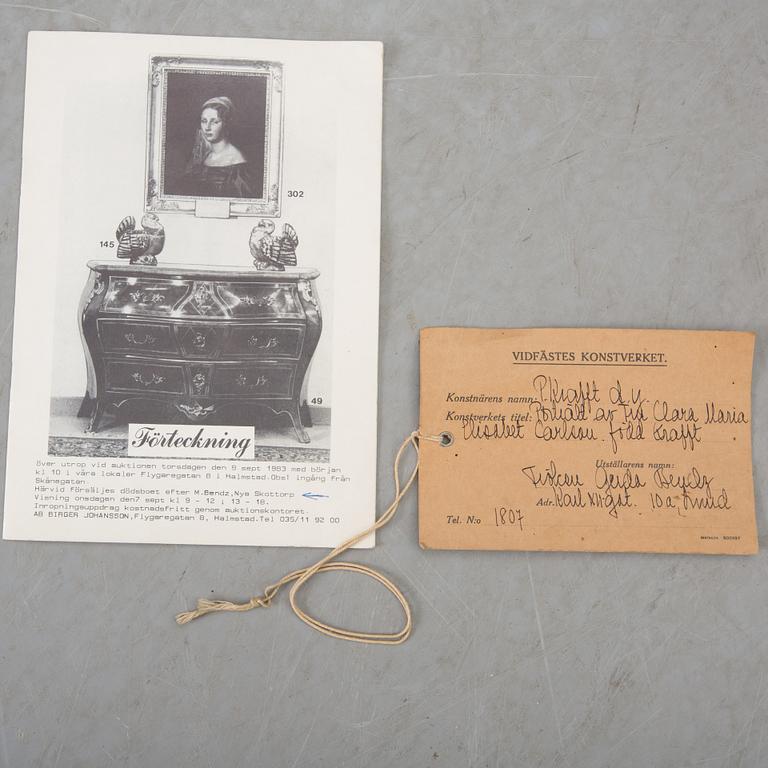 302
145
49
Förteckning
över utrop vid auktionen torsdagen den 9 sept 1983 med början
kl 10 i våra lokaler Flygaregatan 8 i Halmstad.Obs! ingång från
Skånegatan.
Härvid försäljes dödsboet efter M.Bendz,Nya Skottorp
Visning onsdagen den7 sept kl 9 - 12 i 13 - 18.
Inropningsuppdrag kostnadsfritt genom auktionskontoret.
AB BIRGER JOHANSSON,Flygaregatan 8, Halmstad.Tel 035/11 92 00
VIDFÄSTES KONSTVERKET.
Konstnärens namn: P. Krafft d.y.
Konstverkets titel: Porträtt av Fru Clara Maria
Elisabet Carlson. född Krafft
Utställarens namn:
Fröken Gerda
Adr. Karl XII gat. 10 a, Lund
Tel. N:o 1807